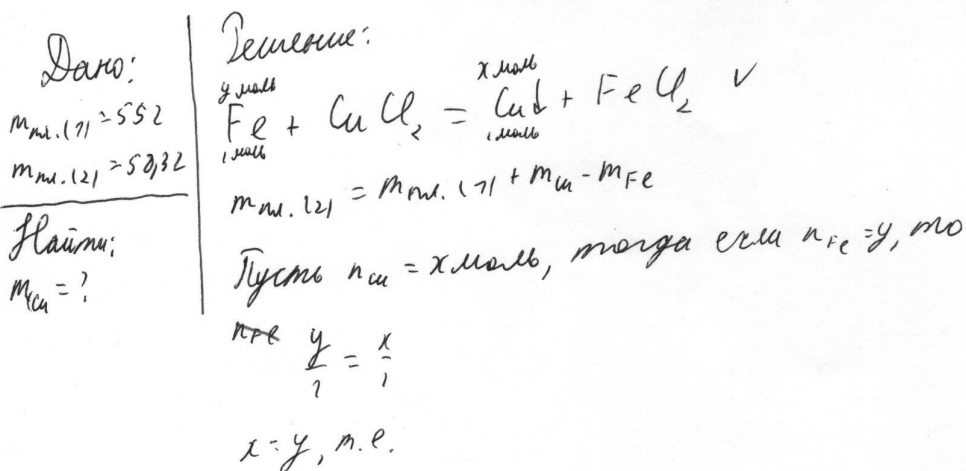 Дано:
m пл.(1) = 55г
m пл.(2) = 58,3г
Найти:
m Cu = ?
Решение:
y моль x моль
Fe + CuCl₂ = Cu↓ + FeCl₂ ✓
1 моль 1 моль
m пл.(2) = m пл.(1) + m Cu - m Fe
Пусть n Cu = x моль, тогда если n Fe = y, то
y/1 = x/1
x = y, т.е.